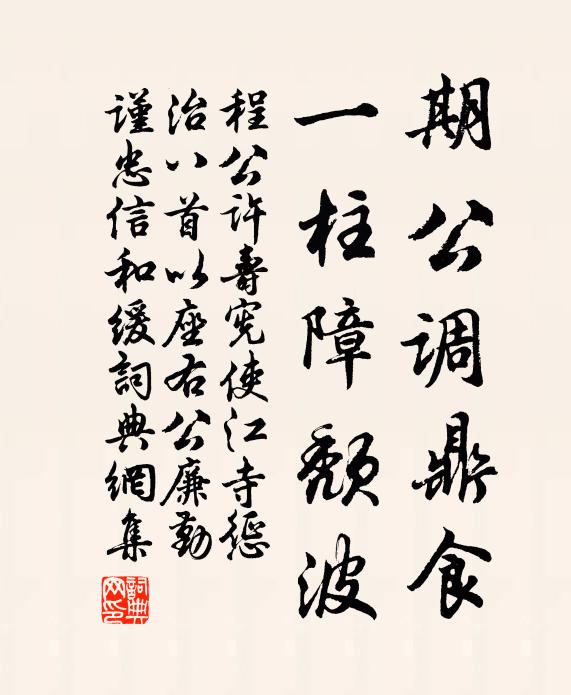 期公调鼎食
一柱障颓波
程公许寿宪使江寺丞
治八首以座右公廉勤
謹忠信和緩詞典網集
詞典
网印